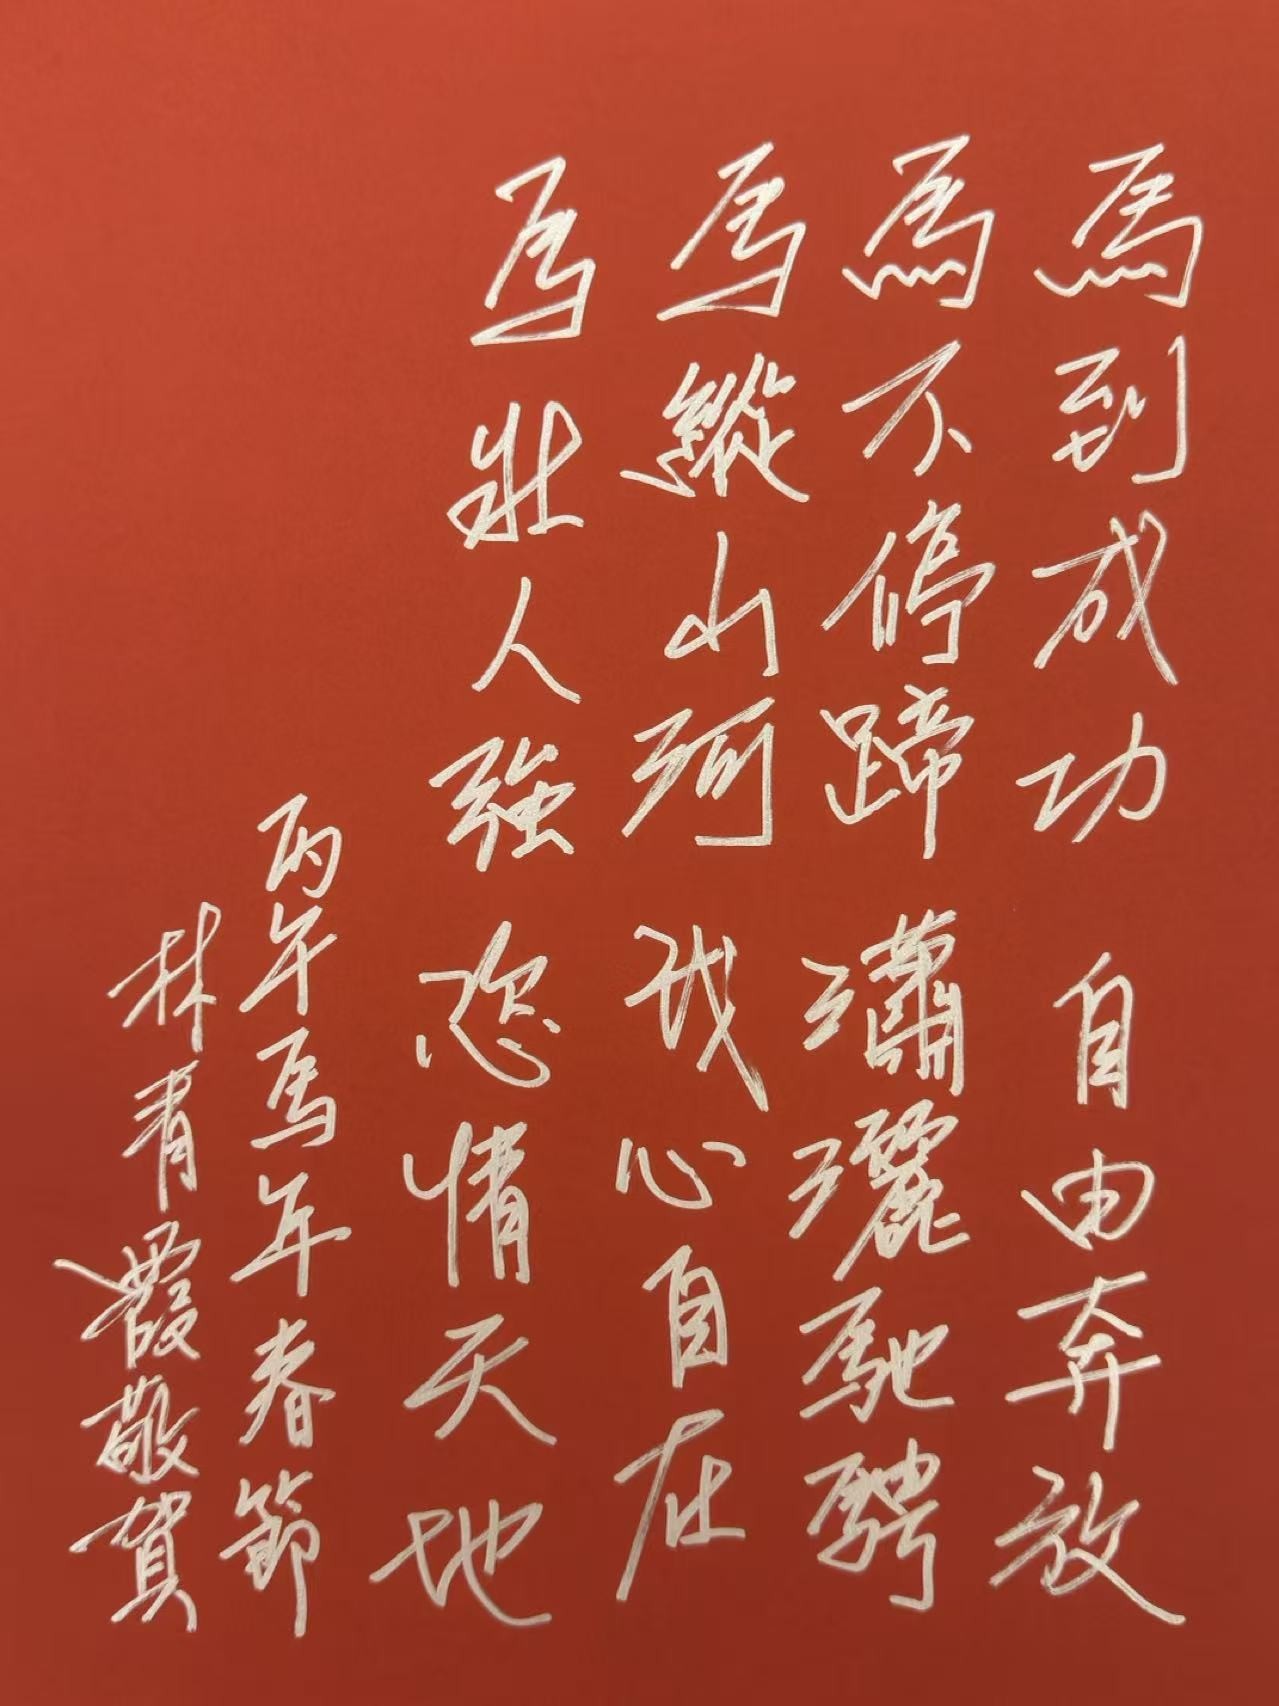 馬到成功 自由奔放
馬不停蹄 瀟灑馳騁
馬縱山河 我心自在
馬壯人強 恣情天地
丙午馬年春節
林青霞敬賀